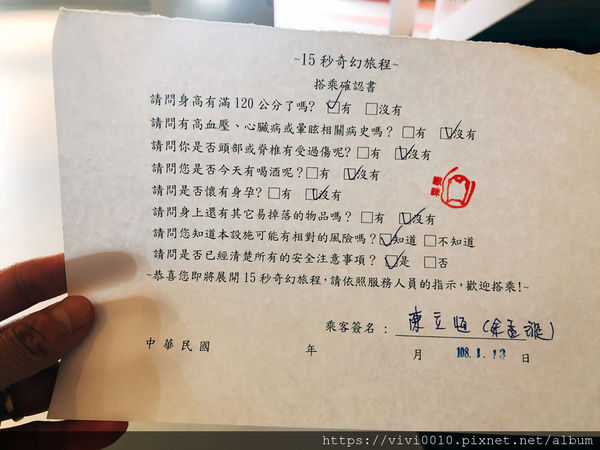 ~15 秒奇幻旅程~
搭乘確認書
請問身高有滿 120 公分了嗎? □有 □沒有
請問有高血壓、心臟病或暈眩相關病史嗎? □有 □沒有
請問你是否頭部或脊椎有受過傷呢? □有 □沒有
請問您是否今天有喝酒呢? □有 □沒有
請問是否懷有身孕? □有 □沒有
請問身上還有其它易掉落的物品嗎? □有 □沒有
請問您知道本設施可能有相對的風險嗎? □知道 □不知道
請問是否已經清楚所有的安全注意事項? □是 □否
~恭喜您即將展開 15 秒奇幻旅程,請依照服務人員的指示,歡迎搭乘!~
乘客簽名: 陳立恆
中華民國 年 月 108.1.13 日
https://vivi0010.pixnet.net/album